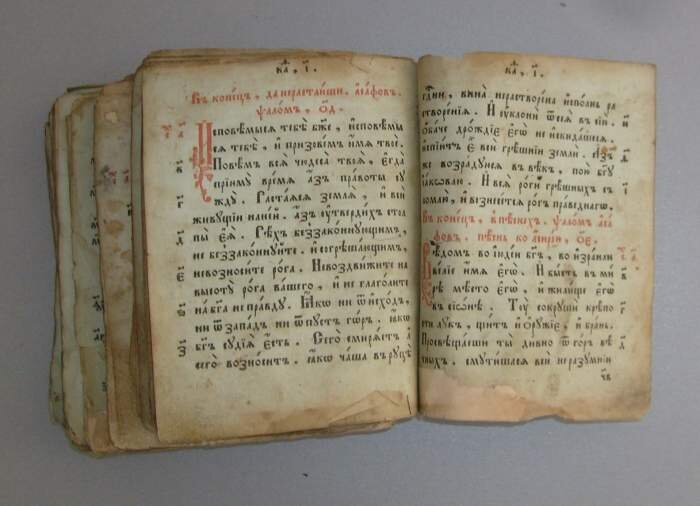 к҃а, і҃.
Въ конецъ, да нерастлиши. а҆са́фовъ.
ѱало́мъ, о҃д.
Исповѣмыся тебѣ бж҃е, и҆сповѣмы
ся тебѣ, и҆ призовемъ и҆мя твое.
Повѣмъ вся чюдеса твоя, є҆гда̀
прїимꙋ̀ время а҆зъ правоты сꙋ
ждꙋ. Растаяся земля̀, и҆ вси
живꙋщїи нанеи. а҆зъ ѹ҆твердихъ стол
пы є҆я̀. Рѣхъ беззаконнꙋющимъ,
не беззаконнꙋйте. и҆ согрѣшающимъ,
невозносите рога. Невоздвижите на
высотꙋ рога вашего, и҆ не глаголите
на бг҃а не правдꙋ. Ꙗ҆кѡ ни ѿ и҆схо́дъ,
ни ѿ западъ ни ѿ пꙋстъ го́ръ. ꙗ҆кѡ
бг҃ъ сꙋдїя є҆сть. Сего смиряетъ а҆
сего возноситъ. ꙗ҆кѡ чаша в рꙋцѣ
к҃а, і҃.
гд҃ни, вина̀ нерастворена и҆сполнь ра
створенїя. И ѹ҆клони ѿ сея въ сїю.
Ѻ҆баче дрождїе є҆гѡ̀ не и҆скидашеся.
и҆спїютъ є҆ вси грѣшнїи земли. А҆зъ
же возрадꙋюся в вѣкъ, пою бг҃ꙋ
і҆аковлю. И вся роги грѣшныхъ с
ломлю, и҆ вознесется рогъ праведнагѡ.
Въ конецъ, и҆ пѣснехъ, ѱаломъ а҆са́
фовъ. пѣснь ко а҆сирїи, о҃е.
Вѣдомъ во і҆юдеи бг҃ъ, во і҆зраили
велїе и҆мя є҆гѡ̀. И бысть в ми
рѣ мѣсто є҆гѡ̀, и҆ жилище є҆гѡ̀
въ сїѡнѣ. Тꙋ̀ сокрꙋши крѣпо
сти лꙋкъ, щитъ и҆ ѻ҆рꙋжїе, и҆ брань.
Просвѣщаеши ты дивно ѿ горъ вѣ
чныхъ. смѧтошася вси неразꙋмнїи